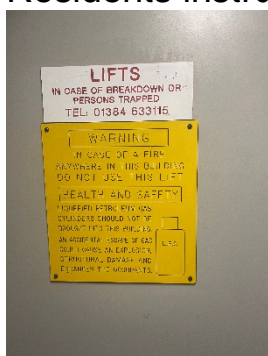 LIFTS
IN CASE OF BREAKDOWN OR
PERSONS TRAPPED
TEL: 01384 633115
WARNING
IN CASE OF A FIRE
ANYWHERE IN THIS BUILDING
DO NOT USE THIS LIFT
HEALTH AND SAFETY
LIQUEFIED PETROLEUM GAS
CYLINDERS SHOULD NOT BE
BROUGHT INTO THIS BUILDING.
AN ACCIDENTAL ESCAPE OF GAS
COULD CAUSE AN EXPLOSION,
STRUCTURAL DAMAGE AND
ENDANGER THE OCCUPANTS.
L.P.G.